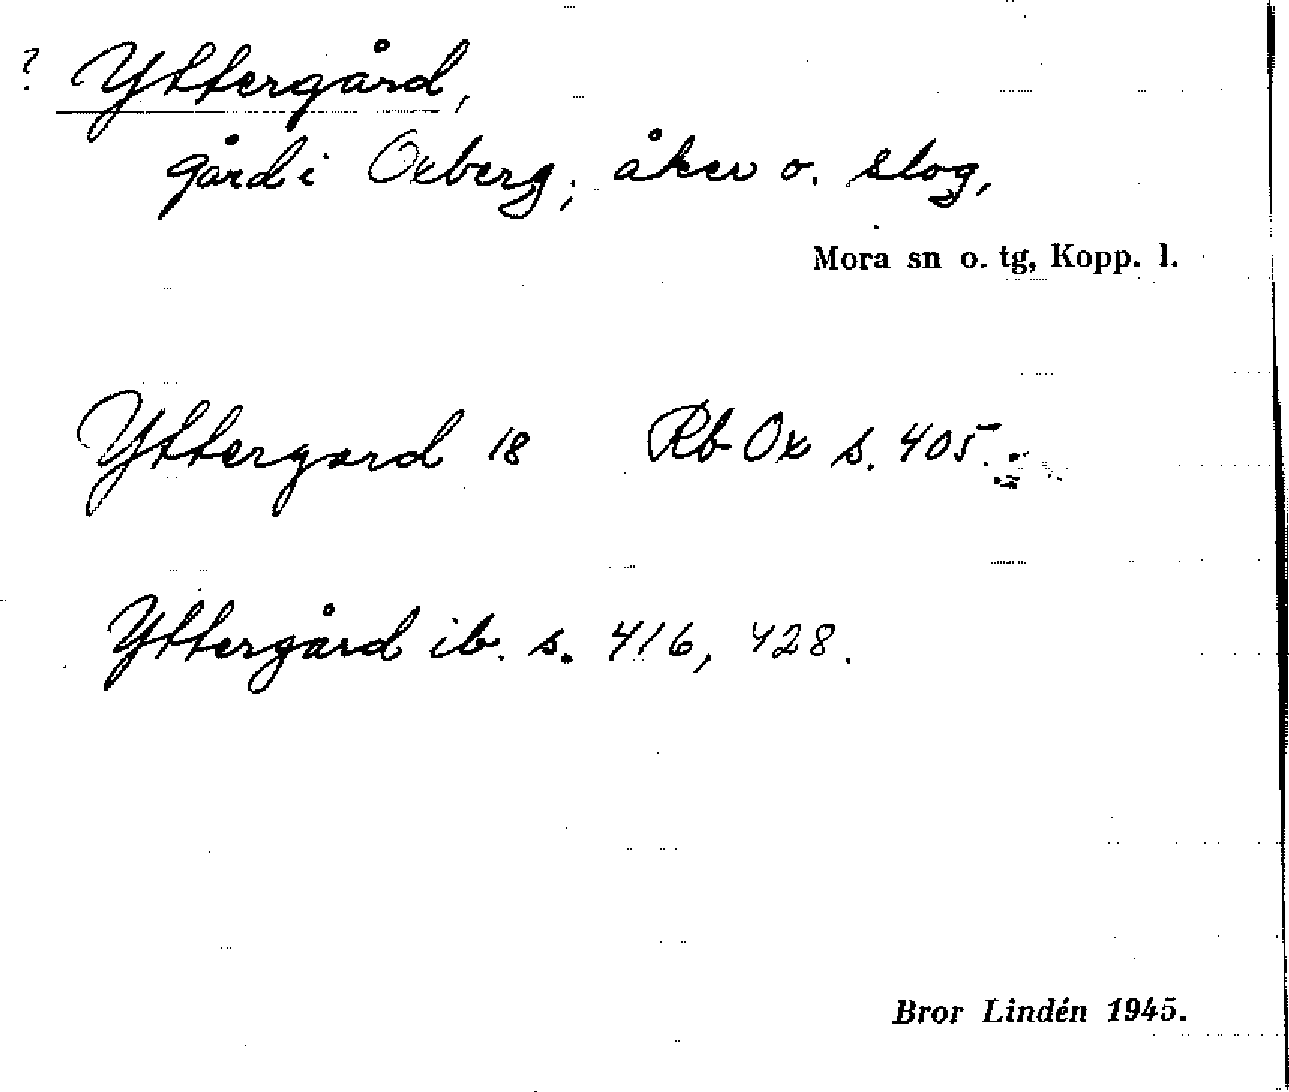 ? Yttergård,
gård i Oxberg; åker o. slog,
Mora sn o. tg, Kopp. l.
Yttergard 18 Rb Ox s. 405.
Yttergård ib. s. 416, 428.
Bror Lindén 1945.